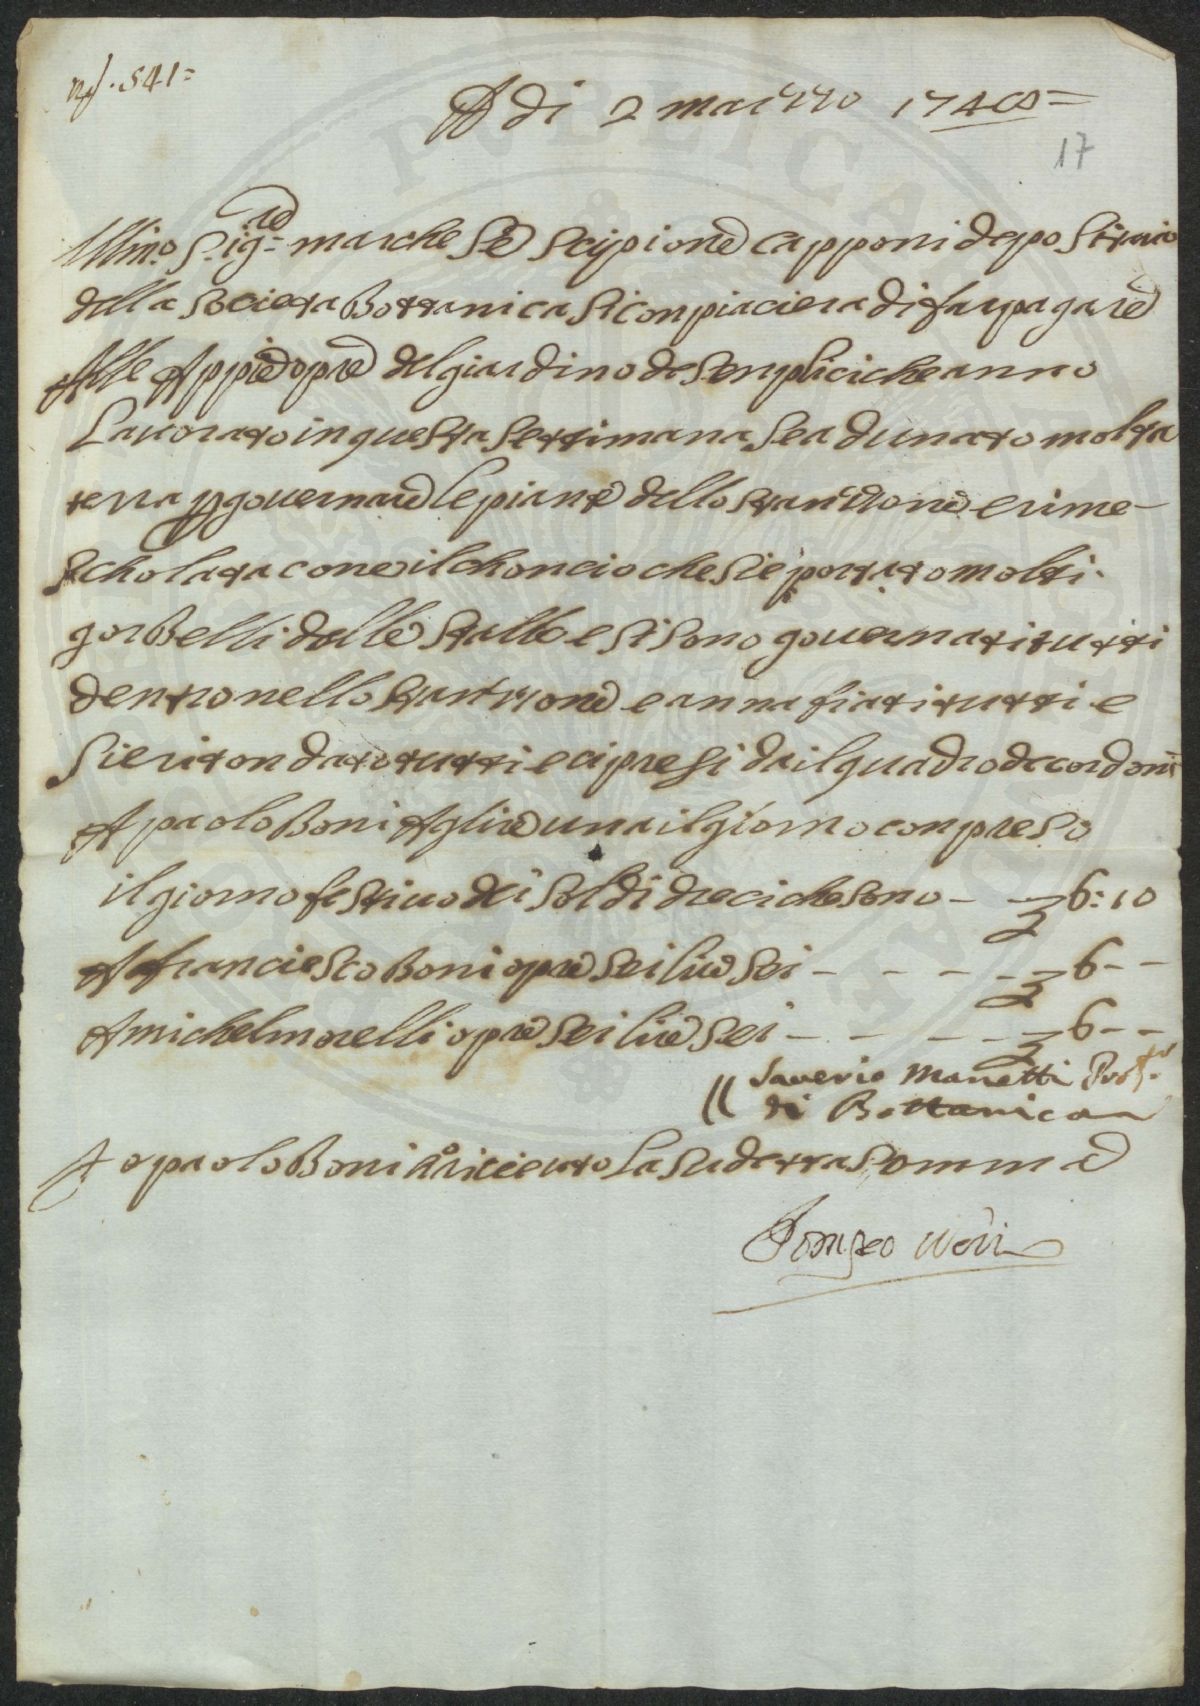 N. 541=
A di 2 marzzo 1748=
17
Illmo. Sigre= marchese scipione capponi depositario
della societa Bottanica si conpiaciera di far pagare
Alle Appie opre del giardino de senplici che anno
Lauorato in questa settimana se adunato molta
terra p gouernare le piante dello stanzione e rime-
scholata cone il choncio che si e portato molti
gorbelli dalle stalle e si sono gouernati tutti
dentro nello stanzione e annafiati tutti e
si e ritondato tutti e cipresi da il quadro de cordoni
A paolo Boni A lire una il giorno conpreso
il giorno festiuo di soldi dieci che sono - 6:10
A franciesco Boni opre sei lire sei - - - - 6 - -
A michel morelli opre sei lire sei - - - - 6 - -
Saverio Manetti Profre.
di Bottanica
Io paolo Boni o riceuto la sudetta somma
Neri